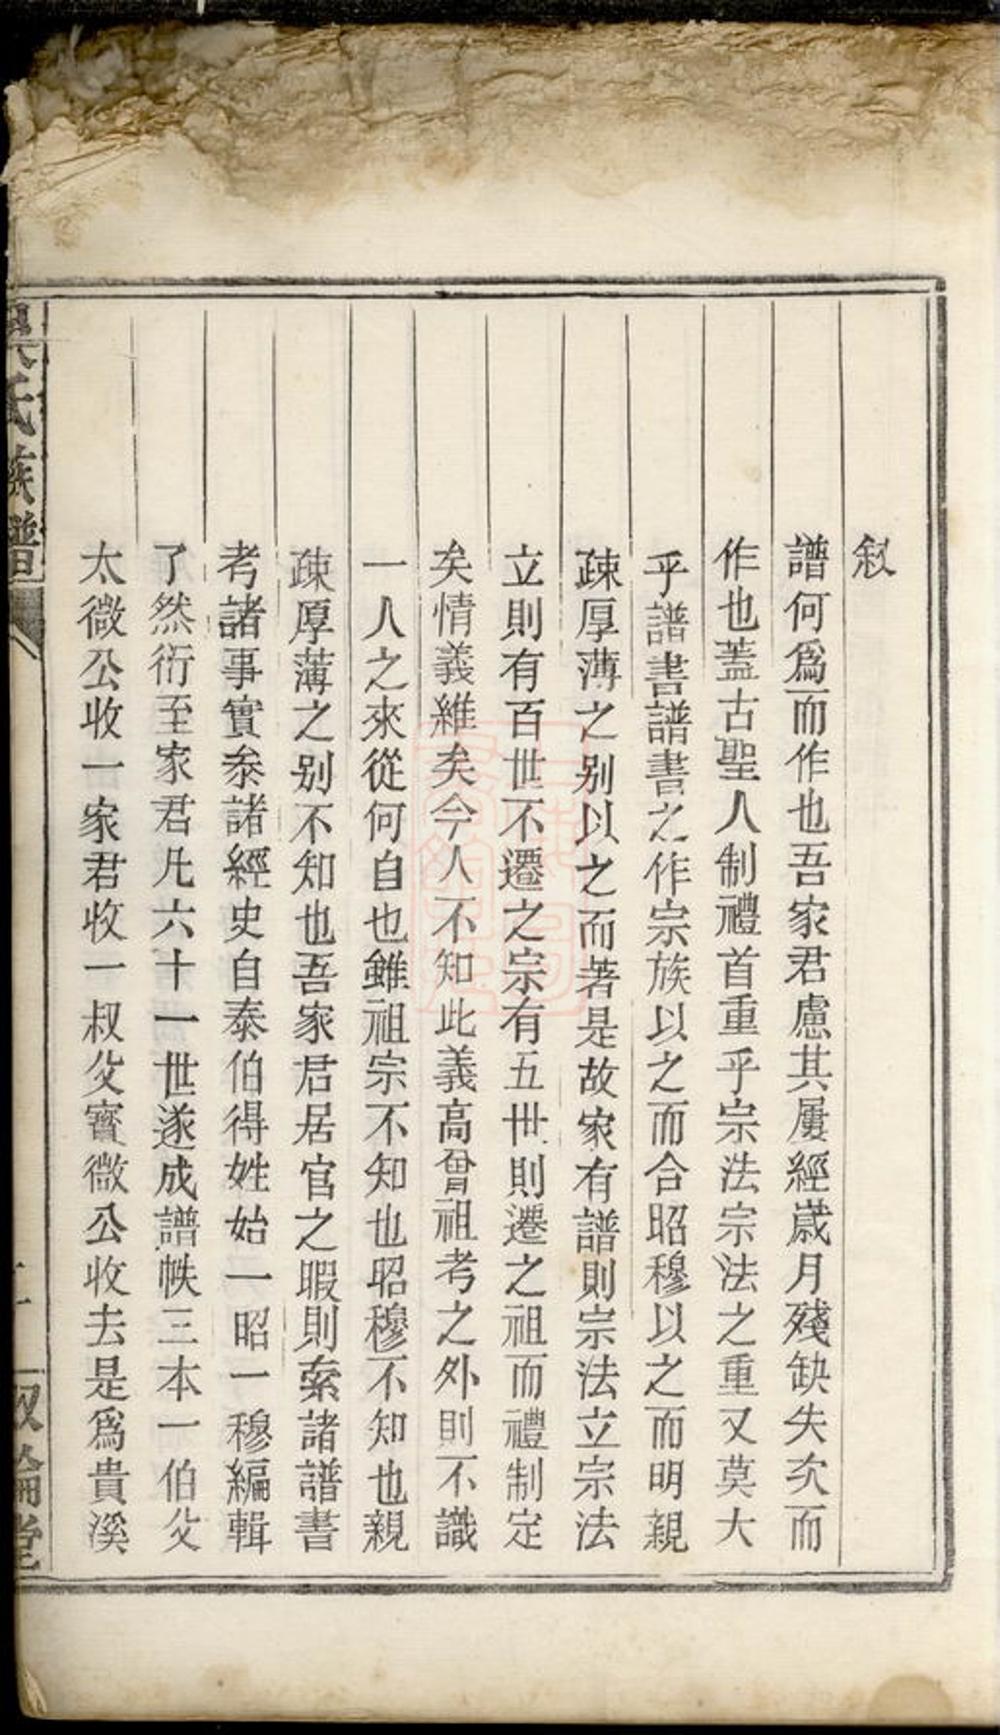 敘
譜何爲而作也吾家君慮其屢經歲月殘缺失次而
作也蓋古聖人制禮首重乎宗法宗法之重又莫大
乎譜書譜書之作宗族以之而合昭穆以之而明親
疎厚薄之别以之而著是故家有譜則宗法立宗法
立則有百世不遷之宗有五世則遷之祖而禮制定
矣情義維矣今人不知此義高曾祖考之外則不識
一人之來從何自也雖祖宗不知也昭穆不知也親
疎厚薄之别不知也吾家君居官之暇則索諸譜書
考諸事實叅諸經史自泰伯得姓始一昭一穆編輯
了然衍至家君凡六十一世遂成譜帙三本一伯父
太微公收一家君收一叔父寳微公收去是爲貴溪
吳氏族譜